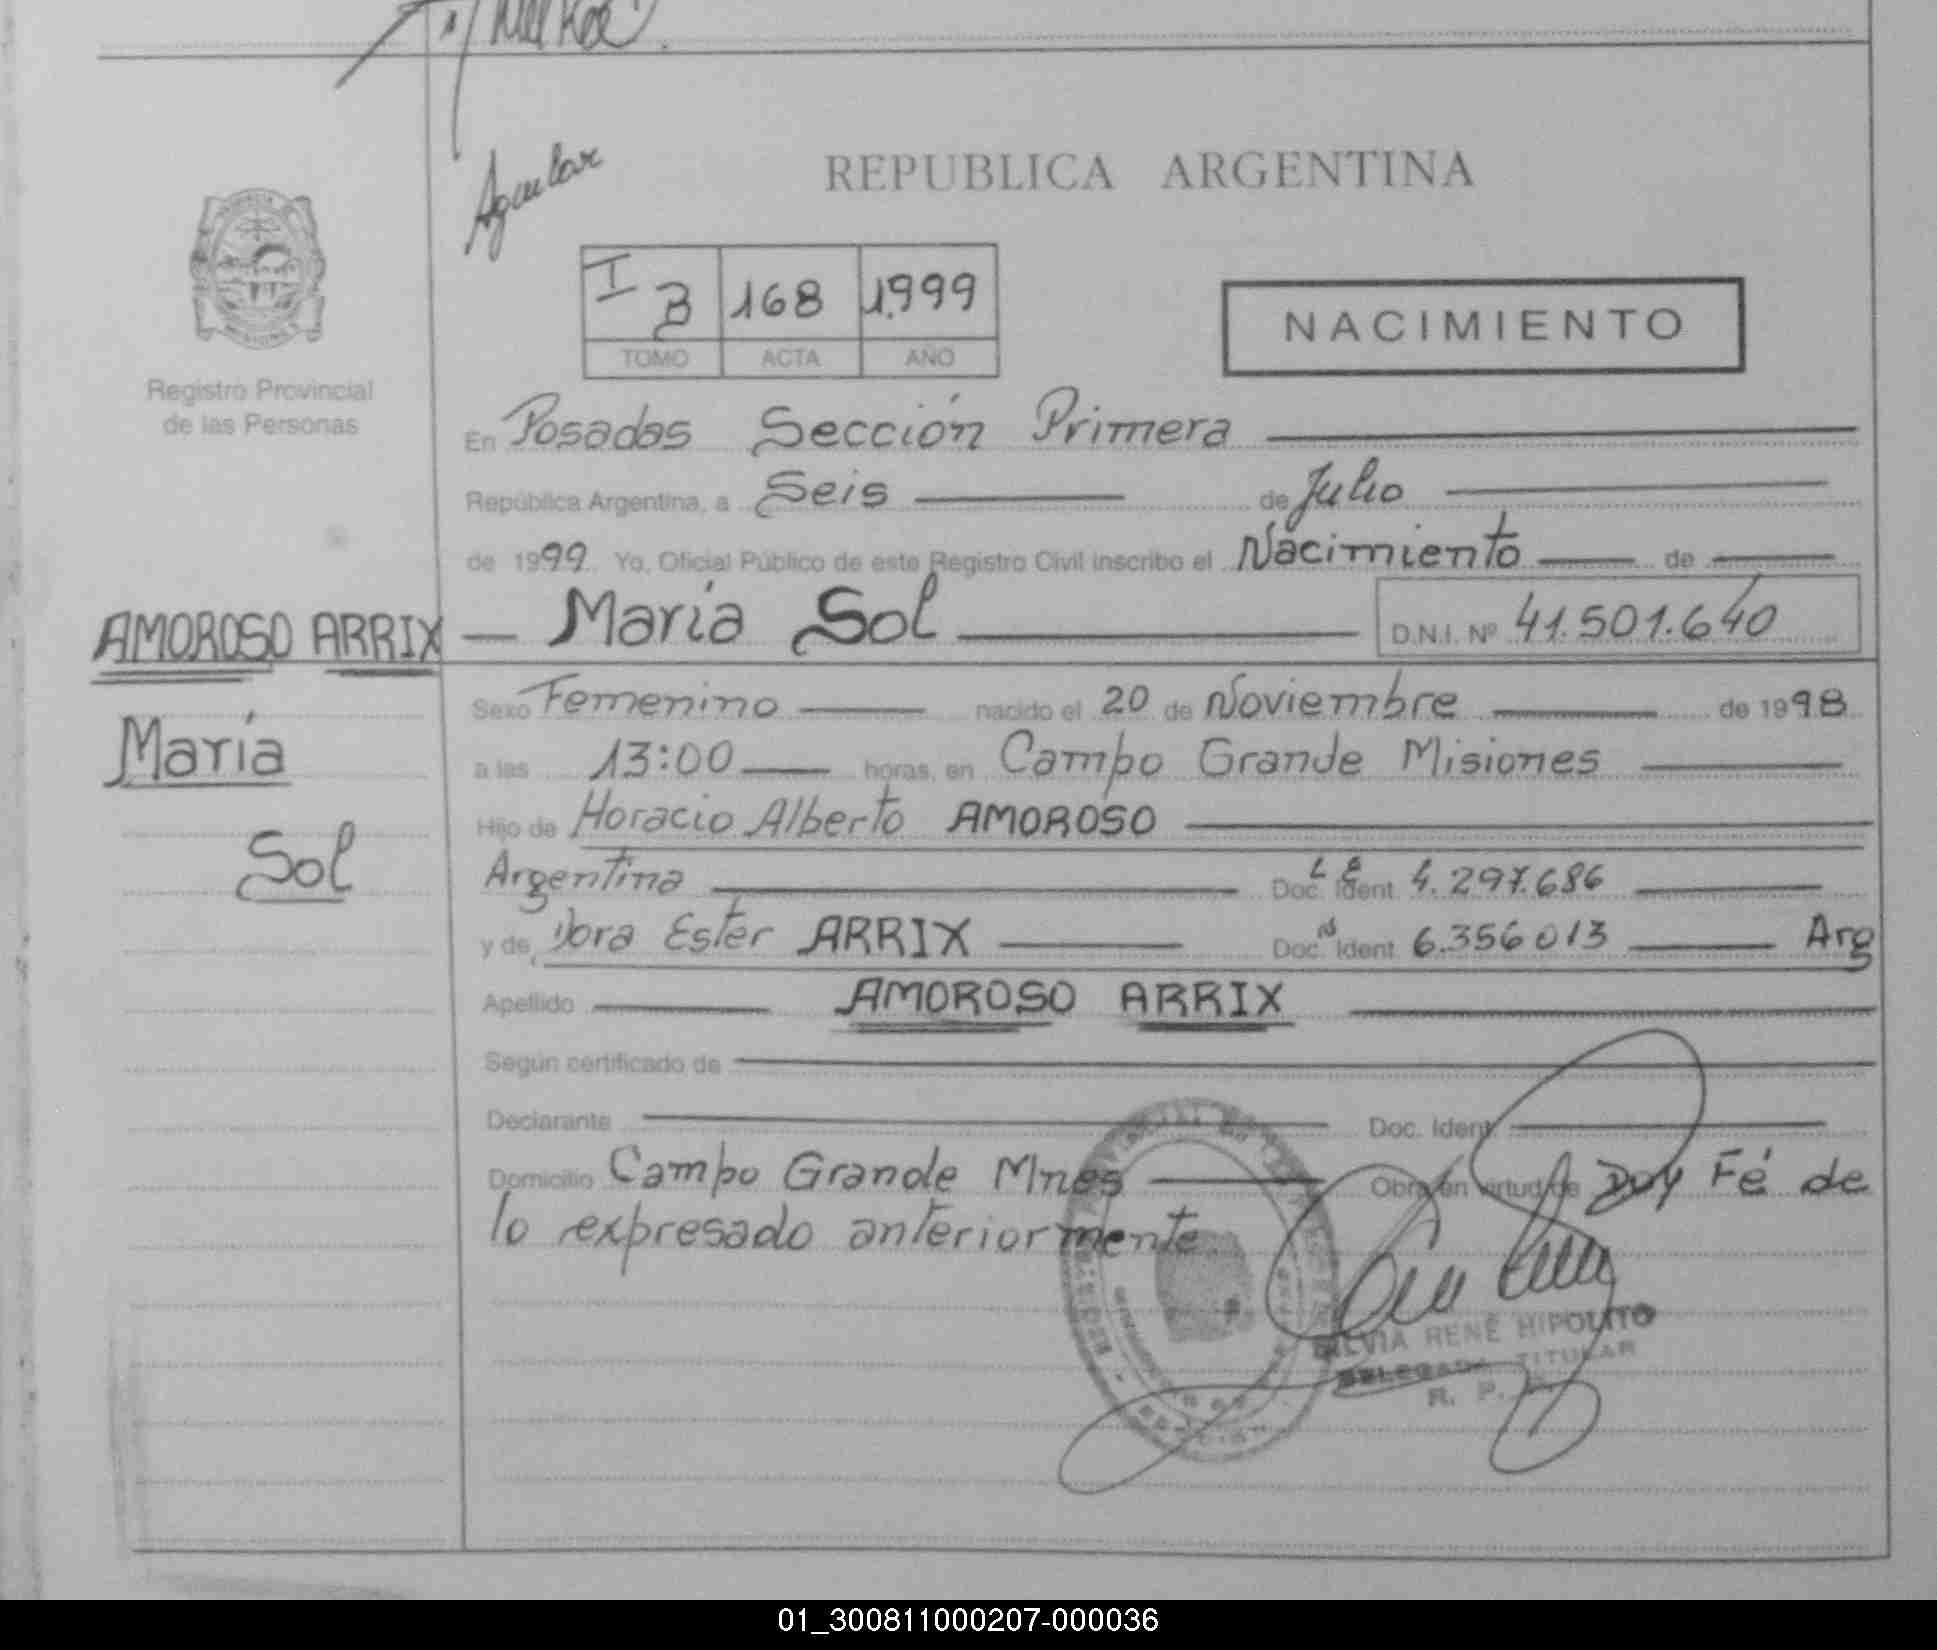 Aguilar
REPUBLICA ARGENTINA
I B 168 1.999
TOMO ACTA AÑO
NACIMIENTO
Registro Provincial
de las Personas
En Posadas Sección Primera
República Argentina, a Seis de Julio
de 1999 Yo, Oficial Público de este Registro Civil inscribo el Nacimiento de
AMOROSO ARRIX
María
Sol
María Sol D.N.I. Nº 41.501.640
Sexo Femenino nacido el 20 de Noviembre de 1998
a las 13:00 horas, en Campo Grande Misiones
Hijo de Horacio Alberto AMOROSO
Argentina Doc. Ident L E 4.297.686
y de Dora Ester ARRIX Doc. Ident 6.356013 Arg
Apellido AMOROSO ARRIX
Según certificado de
Declarante Doc. Ident.
Domicilio Campo Grande Mnes Obra en virtud de Doy Fé de
lo expresado anteriormente.
SILVIA RENÉ HIPOLITO
DELEGADA TITULAR
R. P.
01_300811000207-000036